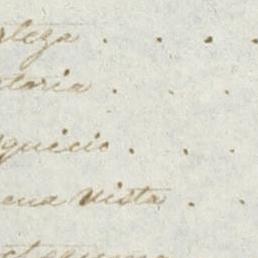 rleza . . . .
atoria . . . .
quicio . . .
ena vista . .